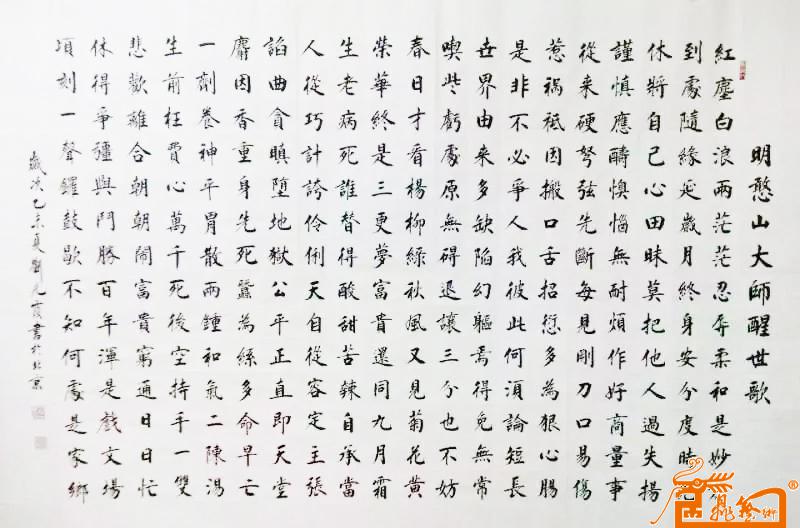 明憨山大師醒世歌
紅塵白浪兩茫茫忍辱柔和是妙
到處隨緣延歲月終身安分度時
休將自己心田昧莫把他人過失揚
謹慎應疇懊惱無耐煩作好商量事
從来硬弩弦先斷每見剛刀口易傷
惹禍祇因搬口舌招愆多為狠心腸
是非不必爭人我彼此何須論短長
世界由来多缺陷幻軀焉得免無常
喫些虧處原無碍退讓三分也不妨
春日才看楊柳綠秋風又見菊花黃
榮華終是三更夢富貴還同九月霜
生老病死誰替得酸甜苦辣自承當
人從巧計誇伶俐天自從容定主張
諂曲貪瞋墮地獄公平正直即天堂
麝因香重身先死蠶為絲多命早亡
一劑養神平胃散兩鍾和氣二陳湯
生前枉費心萬千死後空持手一雙
悲歡離合朝朝鬧富貴窮通日日忙
休得爭彊與鬥勝百年渾是戲文場
頃刻一聲鑼鼓歇不知何處是家鄉
歲次乙未夏劉元霞書於北京